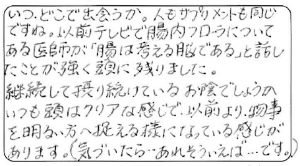 いつ、どこで出会うか。人もサプリメントも同じ
ですね。以前テレビで腸内フローラについて
ある医師が「腸は考える脳である」と話し
たことが強く頭に残りました。
継続して摂り続けているお陰でしょうか
いつも頭はクリアな感じで、以前より、物事
を明るい方へ捉える様になっている感じが
あります。(気づいたら…あれそういえば…です。)